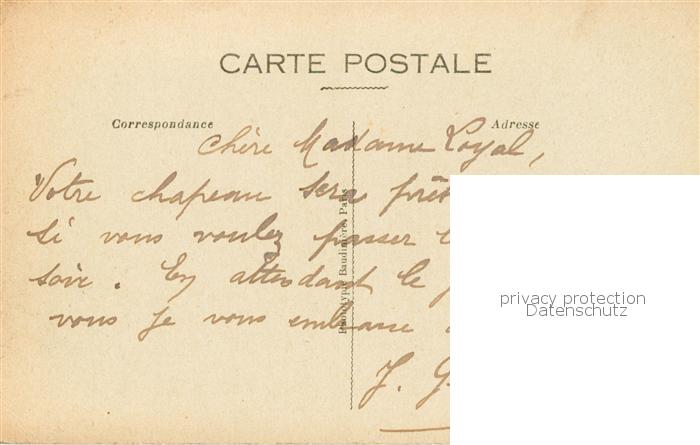 CARTE POSTALE
Correspondance
Adresse
Chère Madame Loyal,
Votre chapeau sera prêt
si vous voulez passer
soir. En attendant le
vous je vous embrasse
J. G
Phototypie Baudinière, Paris
privacy protection
Datenschutz